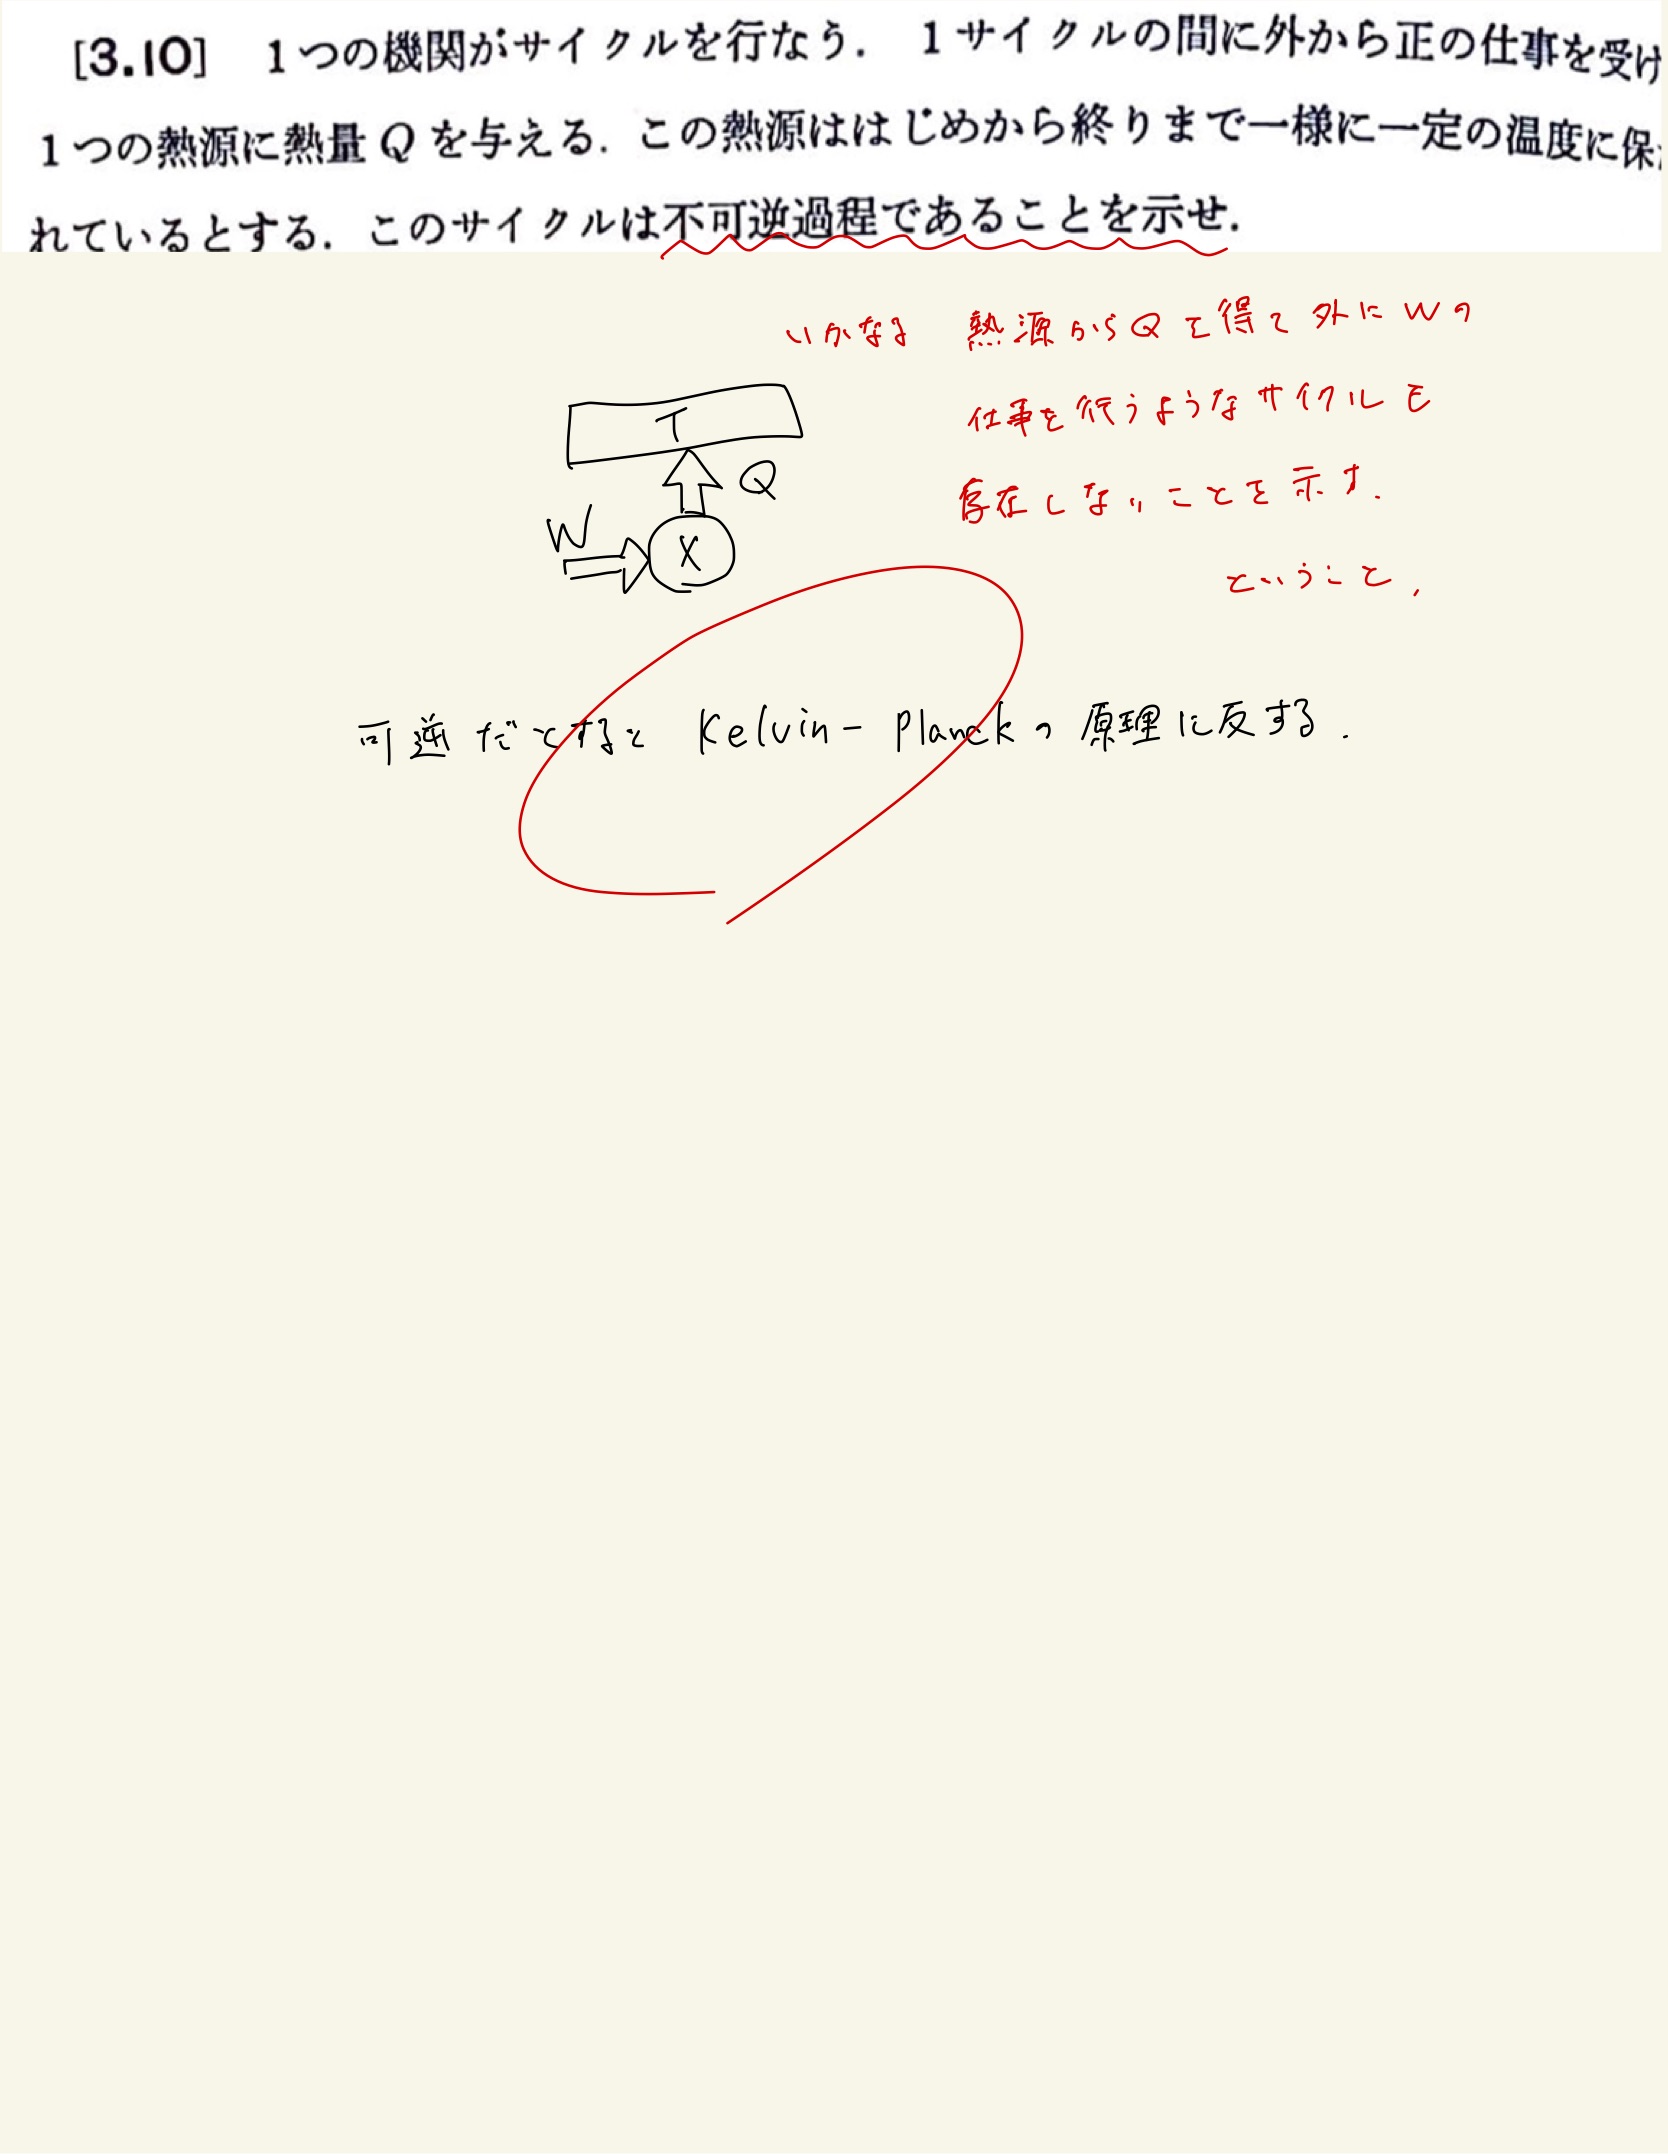 [3.10] 1つの機関がサイクルを行なう. 1サイクルの間に外から正の仕事を受け
1つの熱源に熱量Qを与える. この熱源ははじめから終りまで一様に一定の温度に保
れているとする. このサイクルは不可逆過程であることを示せ.
いかなる 熱源からQを得て外にWの
仕事を行うようなサイクルも
存在しないことを示す.
ということ,
T
Q
W
X
可逆だとすると Kelvin-Planckの原理に反する.